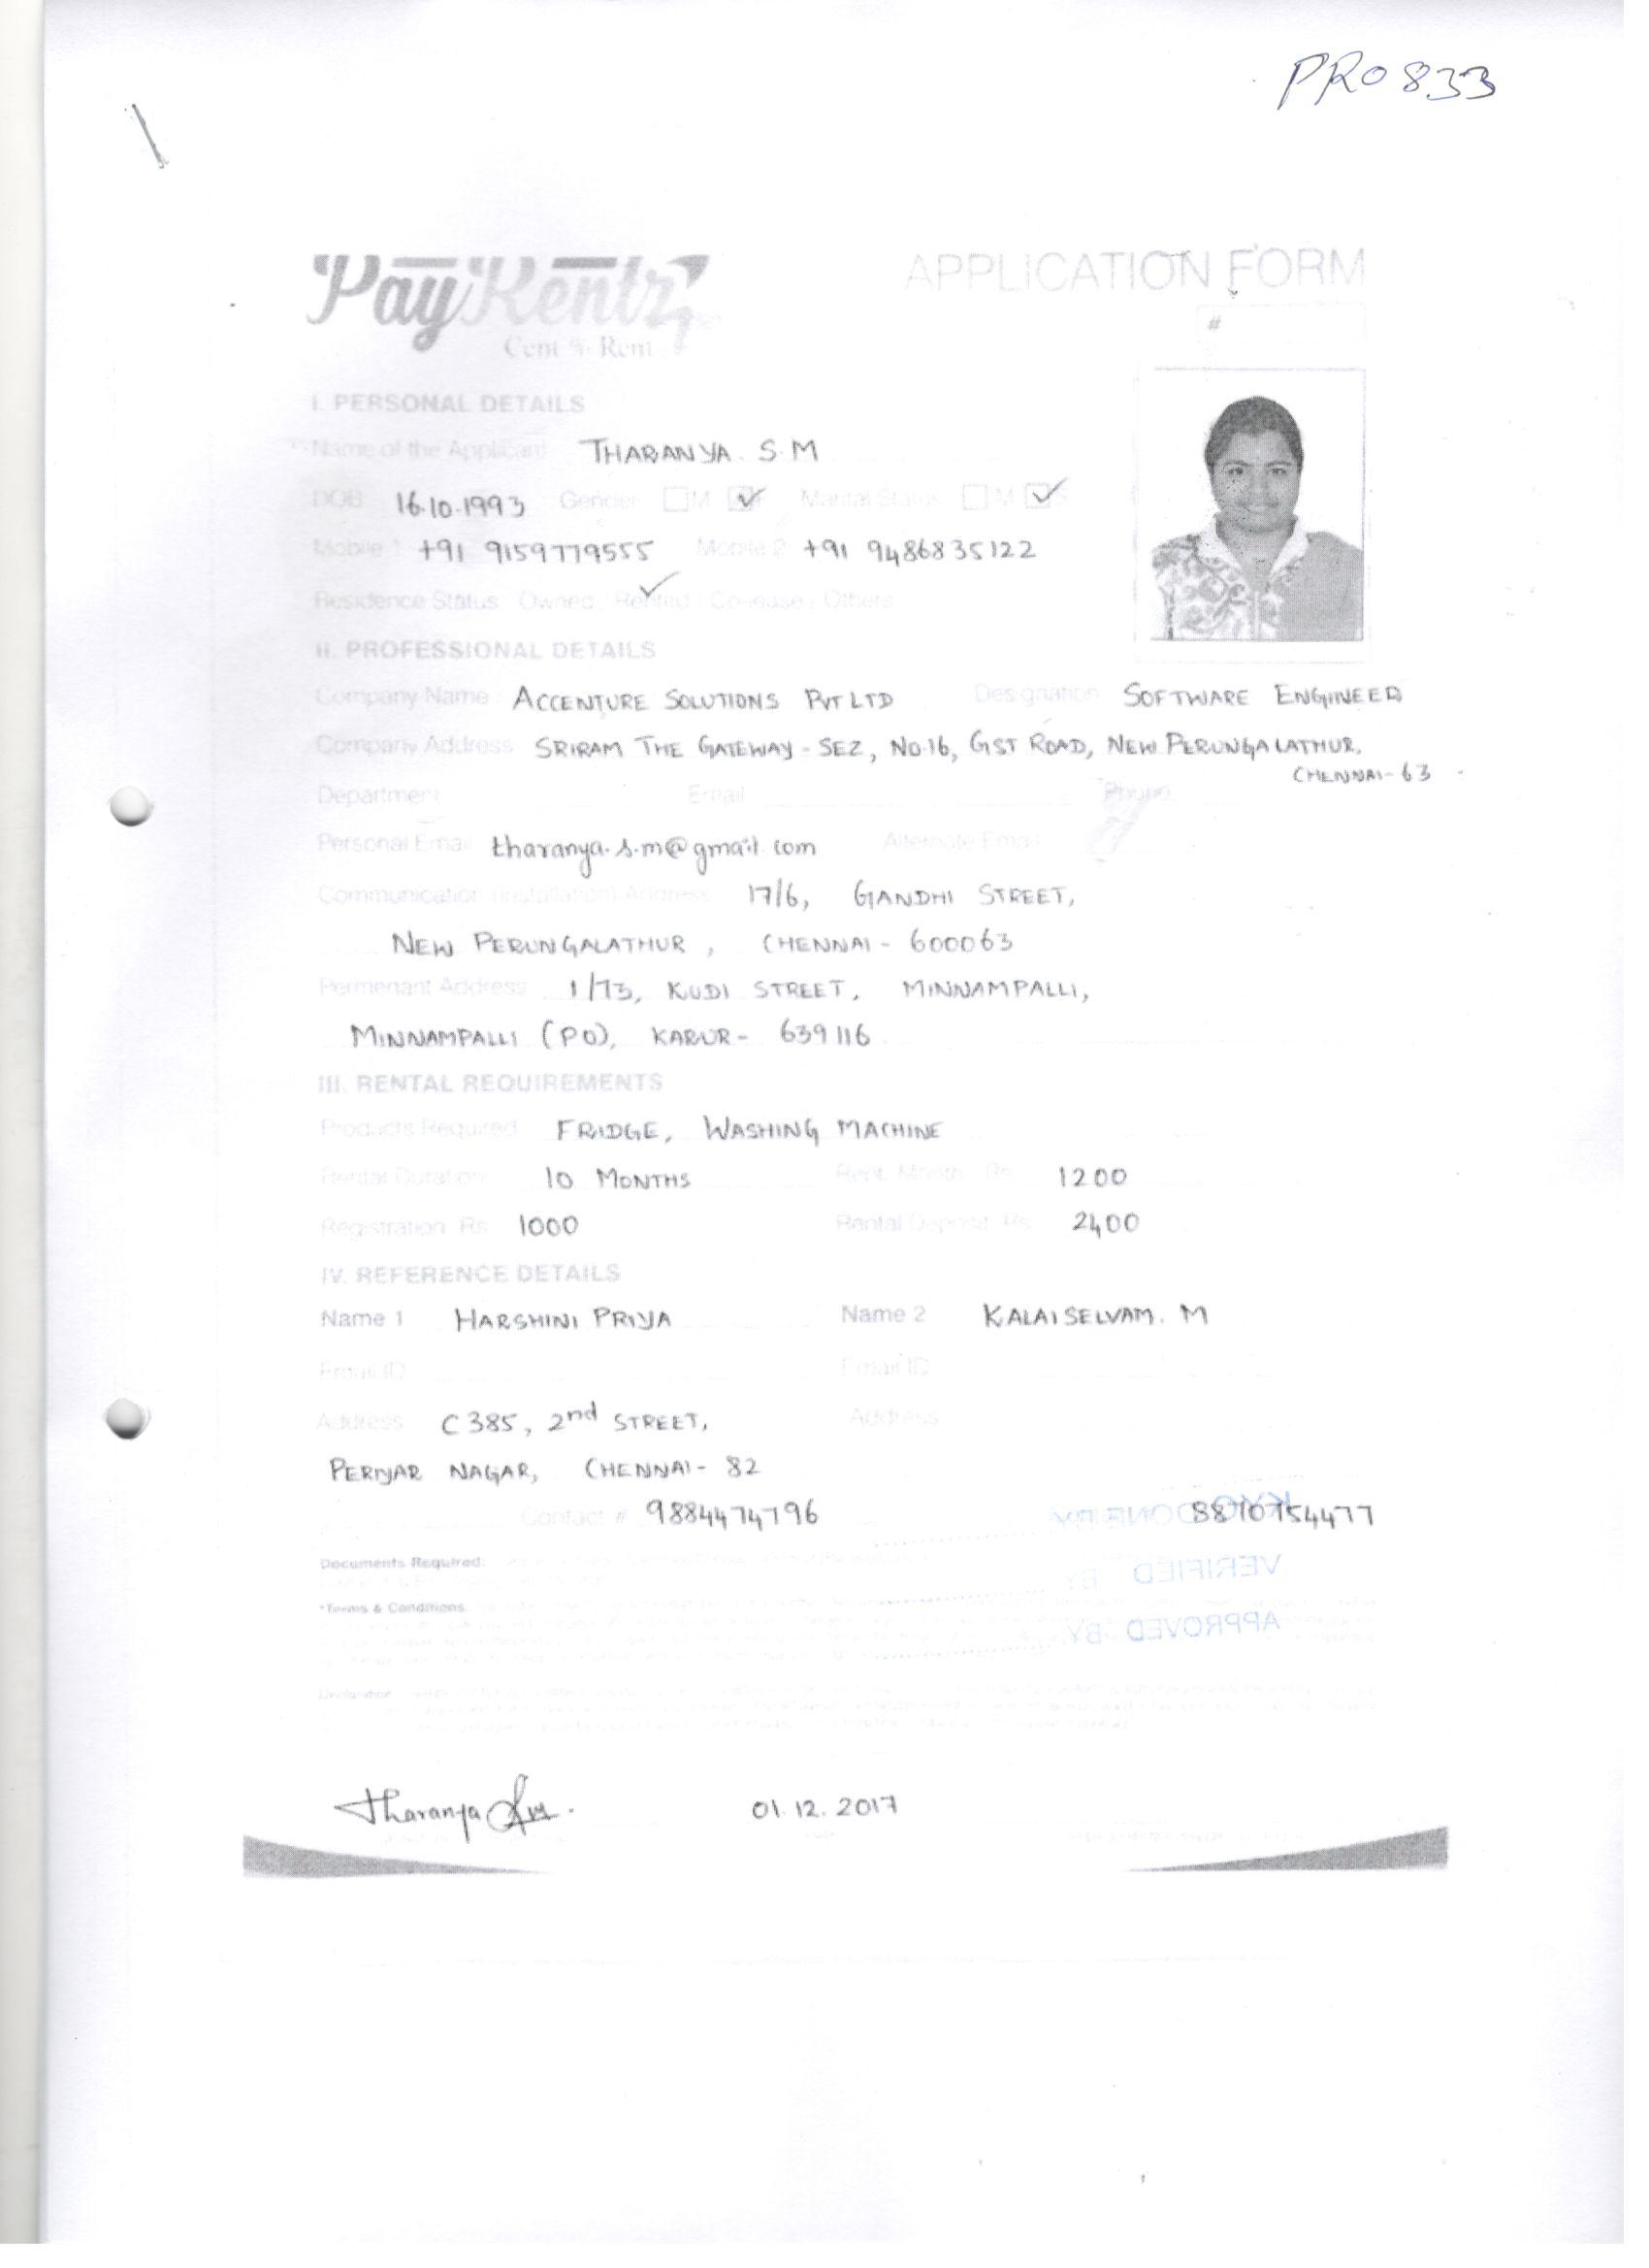 PRO833
PayRentz
APPLICATION FORM
Cent % Rent
#
I. PERSONAL DETAILS
Name of the Applicant THARANYA. S.M
DOB 16.10.1993 Gender M Marital Status M S
Mobile 1 +91 9159779555 Mobile 2 +91 9486835122
Residence Status Owned / Rented / Co-lease / Others
II. PROFESSIONAL DETAILS
Company Name ACCENTURE SOLUTIONS PVT LTD Designation SOFTWARE ENGINEER
Company Address SRIRAM THE GATEWAY - SEZ, No.16, GST ROAD, NEW PERUNGALATHUR,
CHENNAI-63
Department Email Phone
Personal Email tharanya.s.m@gmail.com Alternate Email
Communication (Installation) Address 17/6, GANDHI STREET,
NEW PERUNGALATHUR, CHENNAI - 600063
Permenant Address 1/73, KUDI STREET, MINNAMPALLI,
MINNAMPALLI (PO), KARUR - 639116
III. RENTAL REQUIREMENTS
Products Required FRIDGE, WASHING MACHINE
Rental Duration 10 MONTHS Rent / Month Rs 1200
Registration Rs 1000 Rental Deposit Rs 2400
IV. REFERENCE DETAILS
Name 1 HARSHINI PRIYA Name 2 KALAISELVAM. M
Email ID Email ID
Address C 385, 2nd STREET, Address
PERIYAR NAGAR, CHENNAI - 82
Contact # 9884474796 8810754477
KYC DONE BY
Documents Required:
VERIFIED BY
*Terms & Conditions
APPROVED BY
Declaration
Tharanya 01.12.2017